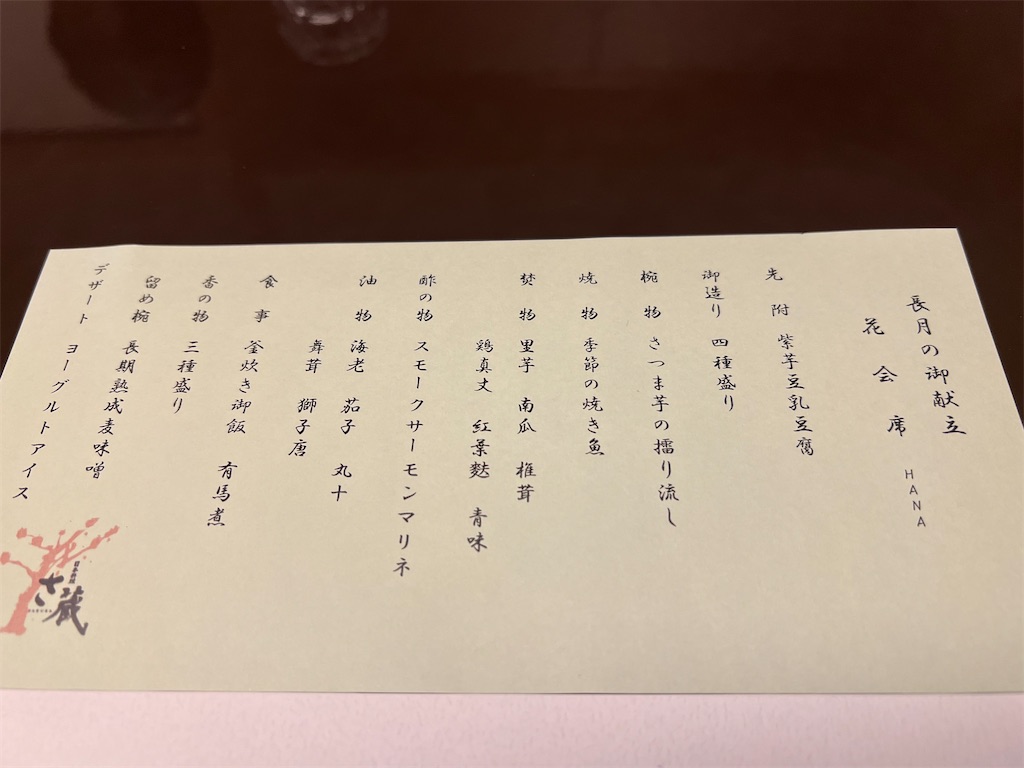 長月の御献立
花会席 HANA
先附 紫芋豆乳豆腐
御造り 四種盛り
椀物 さつま芋の擂り流し
焼物 季節の焼き魚
焚物 里芋 南瓜 椎茸
鶏真丈 紅葉麩 青味
酢の物 スモークサーモンマリネ
油物 海老 茄子 丸十
舞茸 獅子唐
食事 釜炊き御飯 有馬煮
香の物 三種盛り
留め椀 長期熟成麦味噌
デザート ヨーグルトアイス
日本料理
さくら蔵